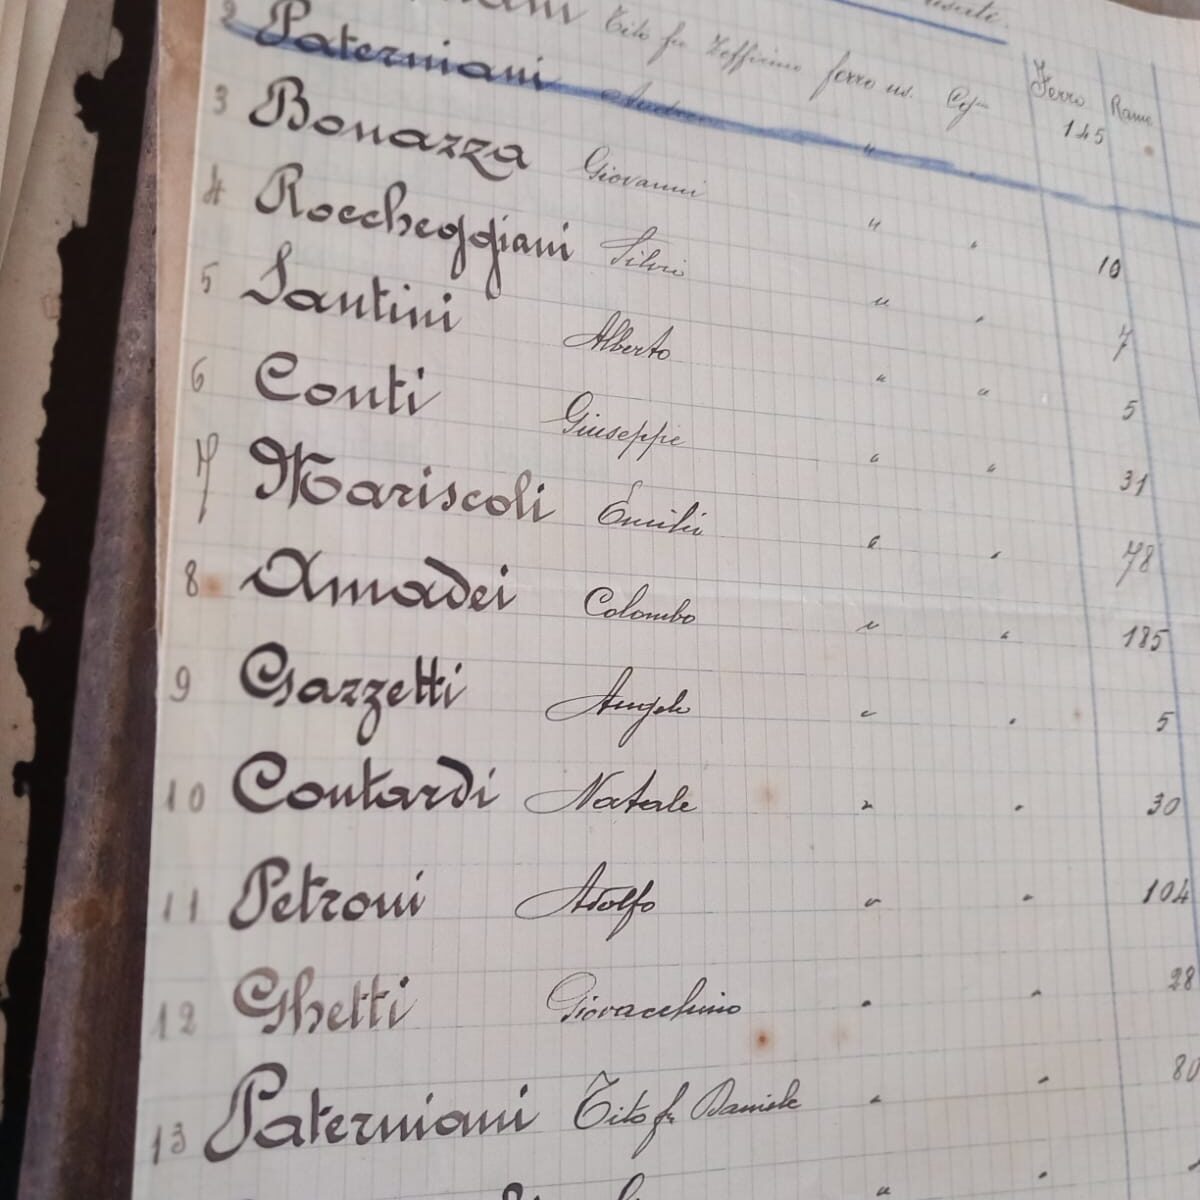 Tito fu Zeffirino ferro us. Cg Ferro Rame
145
2 Paterniani Andrea "
3 Bonazza Giovanni " " 10
4 Roccheggiani Silvio " " 7
5 Santini Alberto " " 5
6 Conti Giuseppe " " 31
7 Mariscoli Emilio " " 78
8 Amadei Colombo " " 185
9 Gazzetti Angelo " " 5
10 Contardi Natale " " 30
11 Petroni Adolfo " " 104
12 Ghetti Giovacchino " " 28
13 Paterniani Tito fu Daniele " " 80